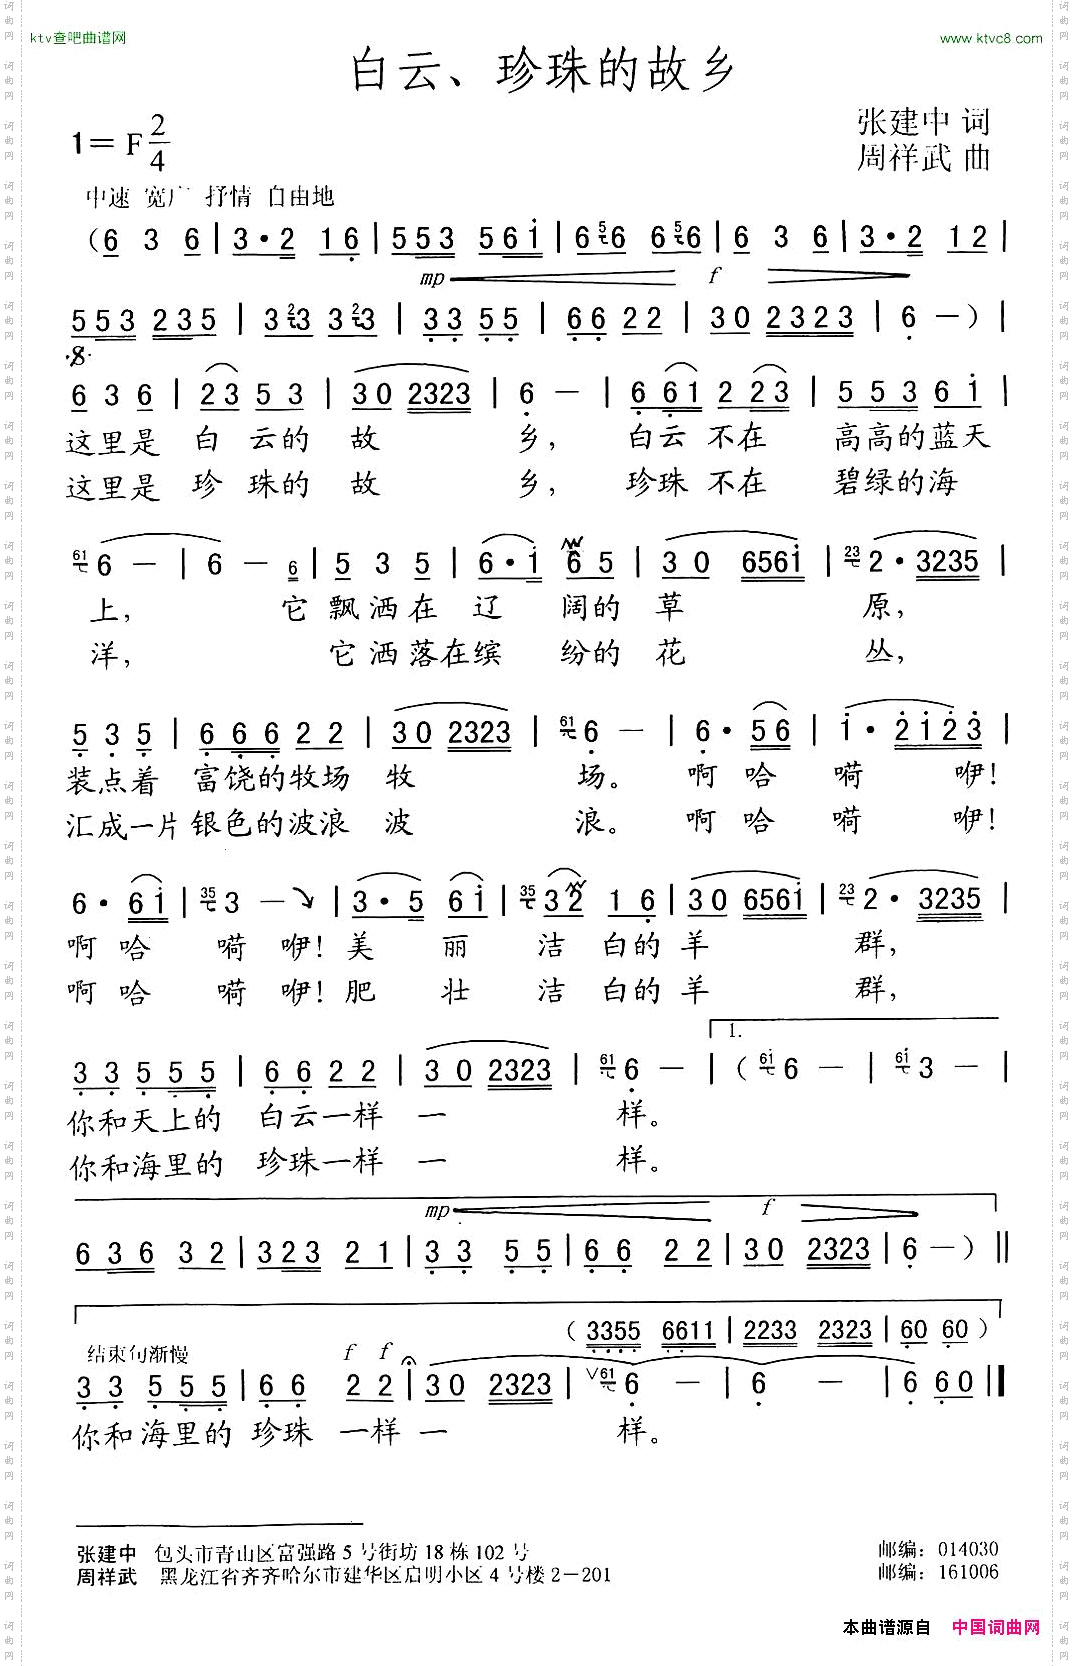 ktv查吧曲谱网
www.ktvc8.com
白云、珍珠的故乡
1=F 2/4
张建中 词
周祥武 曲
中速 宽广 抒情 自由地
(6 3 6 | 3·2 16 | 553 561 | 6 5 6 6 5 6 | 6 3 6 | 3·2 12 |
mp f
553 235 | 3 2 3 3 2 3 | 33 55 | 66 22 | 30 2323 | 6 -) |
6 3 6 | 23 53 | 30 2323 | 6 - | 661 223 | 553 61 |
这里是 白云的 故 乡, 白云不在 高高的蓝天
这里是 珍珠的 故 乡, 珍珠不在 碧绿的海
61 6 - | 6 - 6 | 5 3 5 | 6·1 65 | 30 6561 | 23 2·3235 |
上, 它飘洒在辽 阔的 草 原,
洋, 它洒落在缤 纷的 花 丛,
5 3 5 | 666 22 | 30 2323 | 61 6 - | 6·56 | 1·2123 |
装点着 富饶的牧场 牧 场。 啊 哈 嗬 咿!
汇成一片 银色的波浪 波 浪。 啊 哈 嗬 咿!
6·61 | 35 3 - | 3·5 61 | 35 32 16 | 30 6561 | 23 2·3235 |
啊 哈 嗬 咿! 美 丽 洁 白的 羊 群,
啊 哈 嗬 咿! 肥 壮 洁 白的 羊 群,
1.
33 555 | 66 22 | 30 2323 | 61 6 - | (61 6 - | 61 3 - |
你和天上的 白云一样 一 样。
你和海里的 珍珠一样 一 样。
mp f
636 32 | 323 21 | 33 55 | 66 22 | 30 2323 | 6 -) ||
(3355 6611 | 2233 2323 | 60 60)
结束句渐慢 f f
33 555 | 66 22 | 30 2323 | V 61 6 - | 6 - | 6 60 ||
你和海里的 珍珠 一样 一 样。
张建中 包头市青山区富强路5号街坊18栋102号 邮编: 014030
周祥武 黑龙江省齐齐哈尔市建华区启明小区4号楼2-201 邮编: 161006
本曲谱源自 中国词曲网